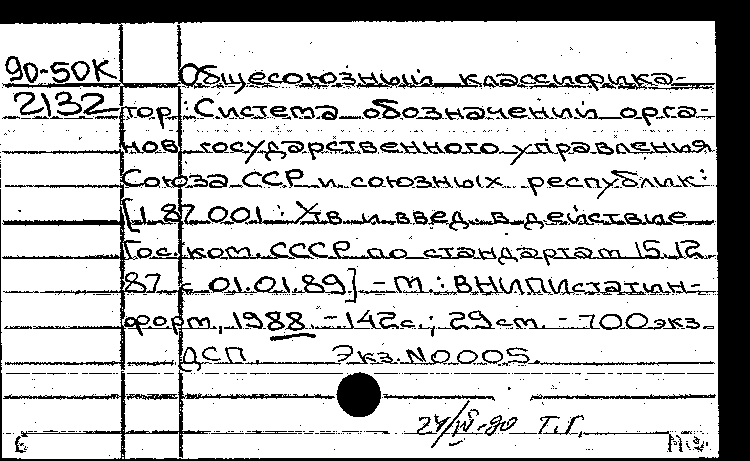 90-50К Общесоюзный классифика-
2132 тор: Система обозначений орга-
нов государственного управления
Союза ССР и союзных республик:
[1 87 001: Утв и введ. в действие
Гос. ком. СССР по стандартам 15.12
87 с 01.01.89] - М.: ВНИПИстатин-
форм, 1988. - 142с.; 29см. - 700экз.
ДСП. Экз.N0005.
24/IV-90 Т.Г.
Б